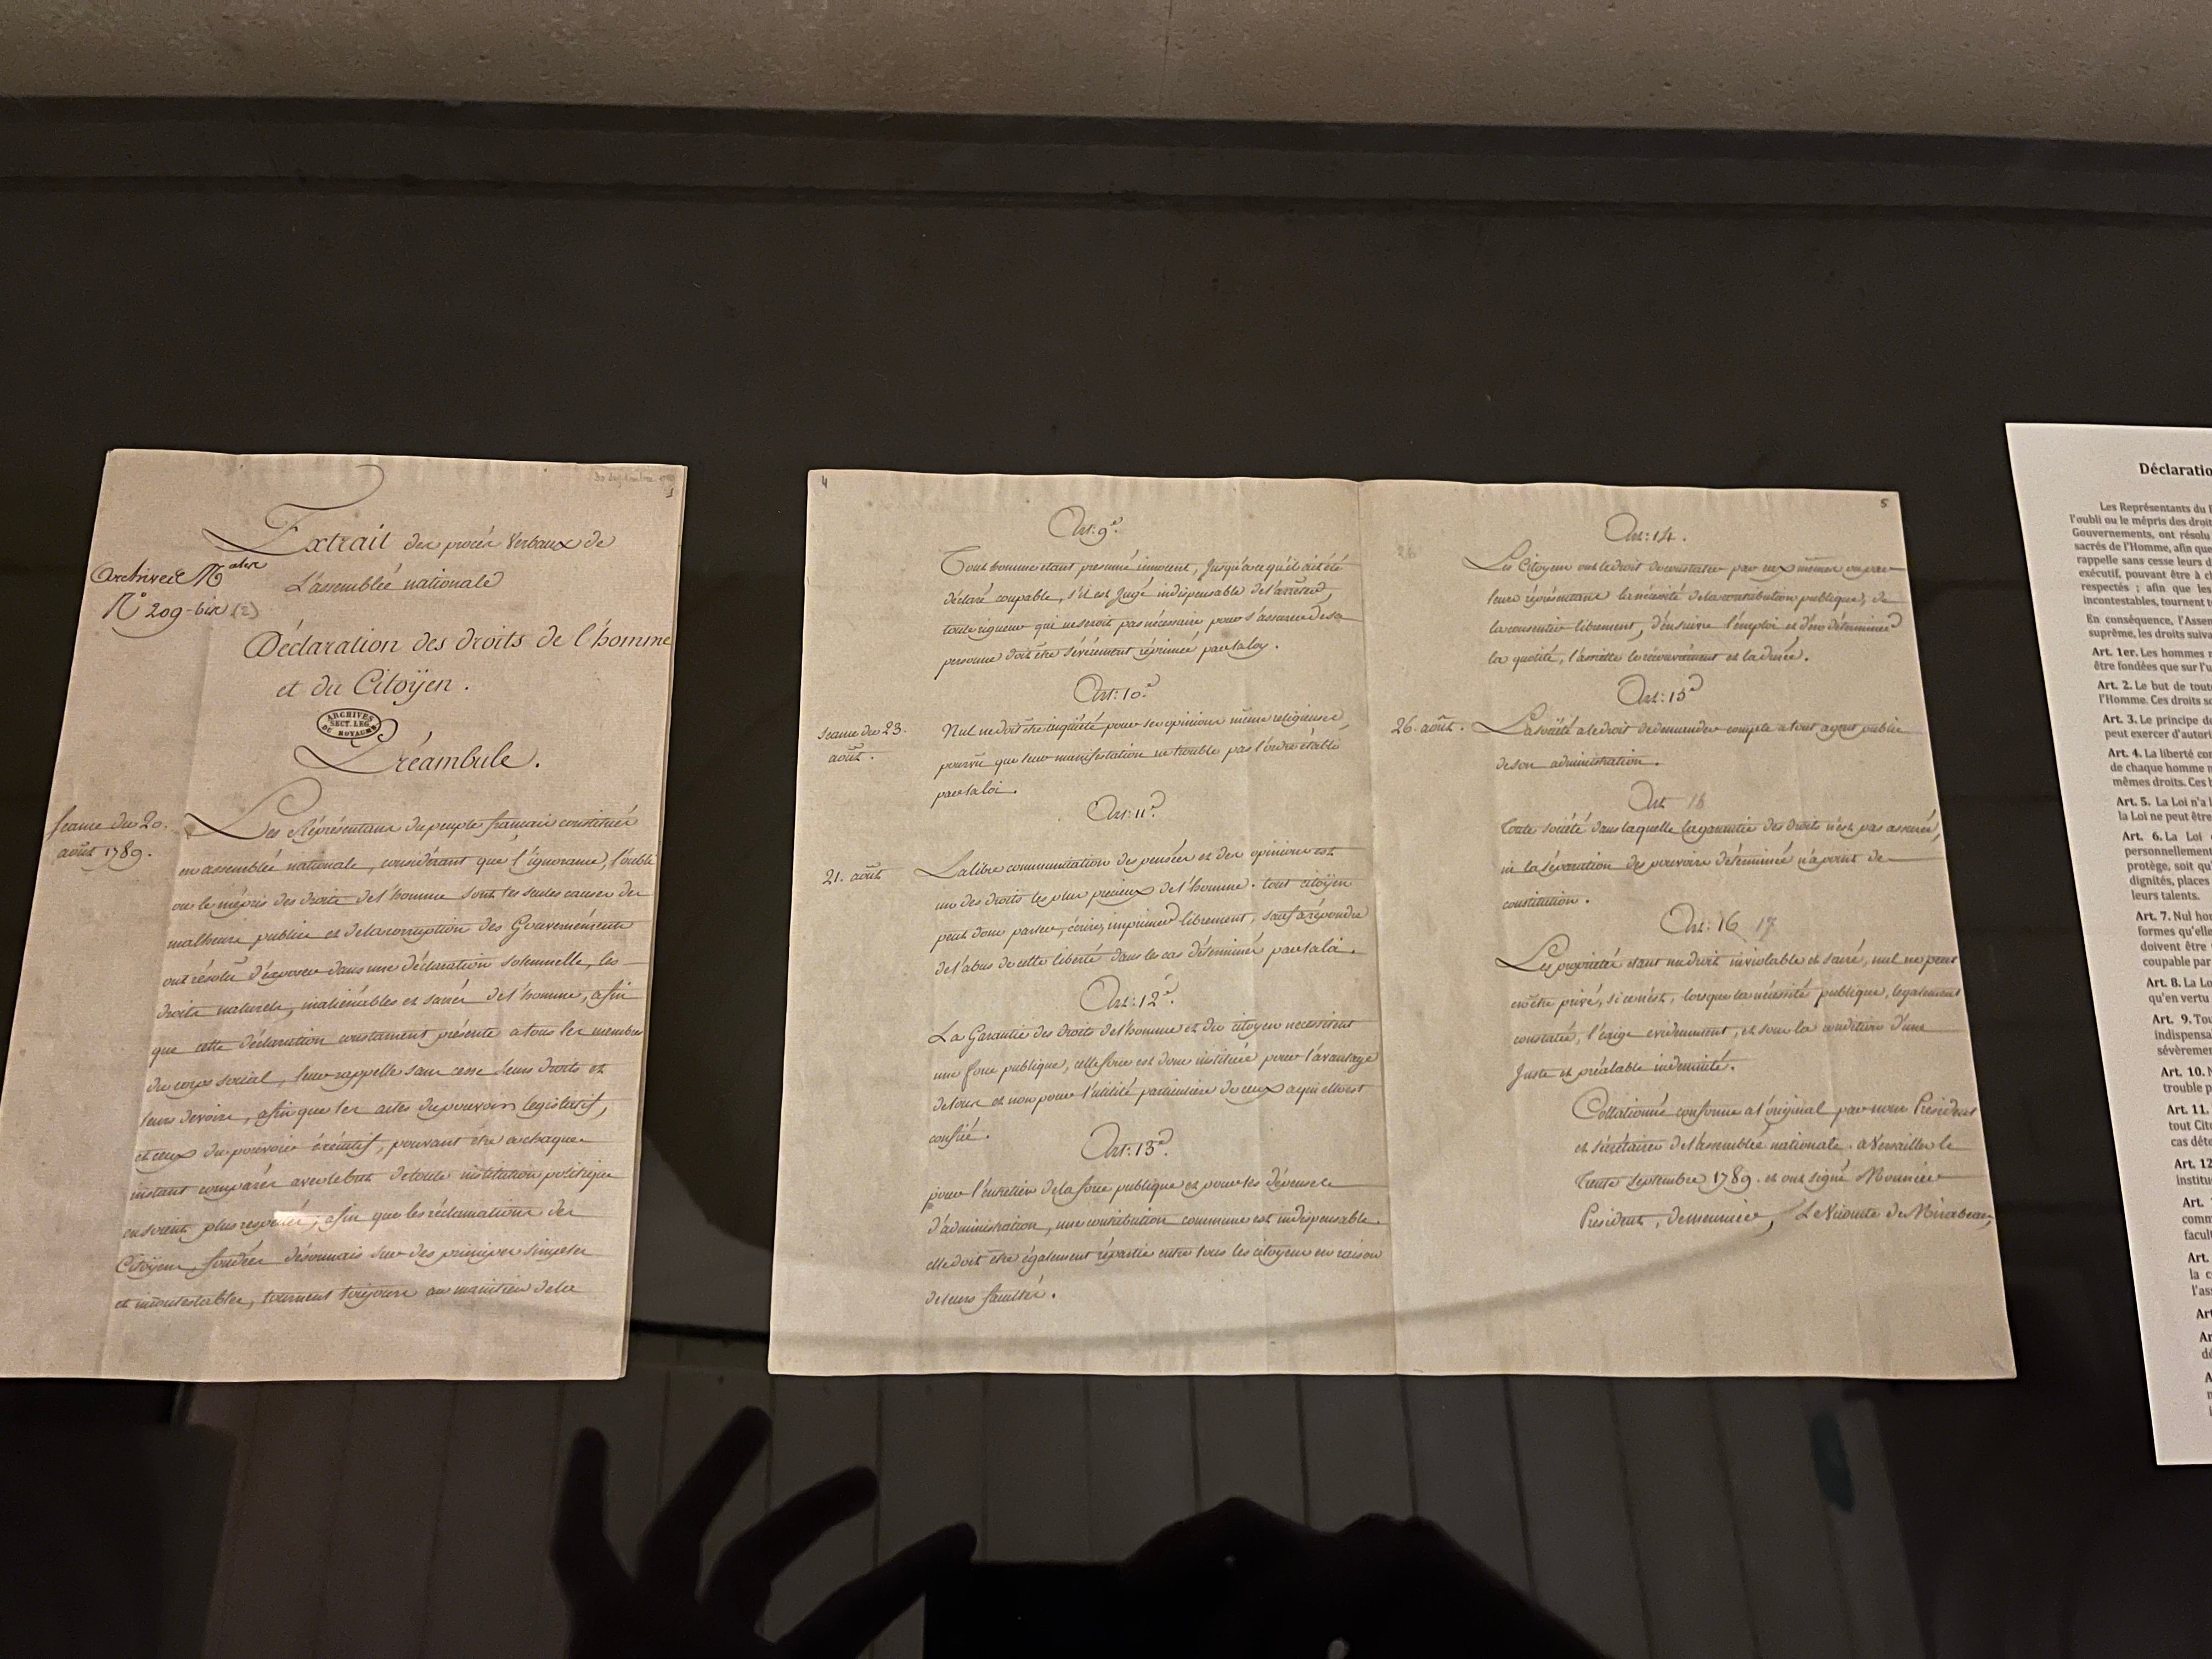 30 Septembre
1
Extrait des procès Verbaux de
L'assemblée nationale
Archives N.ales
N° 209-bis (2)
Déclaration des droits de l'homme
et du Citoÿen.
ARCHIVES
SECT. LEG.
DU ROYAUME
Préambule.
Seance du 20.
août 1789.
Les Réprésentans du peuple francais constitués
en assemblée nationale, considérant que l'ignorance, l'oubli
ou le mépris des droits de l'homme sont les seules causes des
malheurs publics et de la corruption des Gouvernements
ont résolu d'exposer dans une déclaration solemnelle, les
droits naturels, inaliénables et sacrés de l'homme, afin
que cette déclaration constament présente a tous les membres
du corps social, leur rappelle sans cesse leurs droits et
leurs devoirs, afin que les actes du pouvoir legislatif,
et ceux du pouvoir éxécutif, pouvant être a chaque
instant comparés avec le but de toute institution politique
en soient plus respectés; afin que les réclamations des
Citoÿens, fondées désormais sur des principes simples
et incontestables, tournent toujours au maintien de la
4
Art: 9.e
Tout homme etant presumé innocent, Jusqu'a ce qu'il ait été
déclaré coupable, s'il est Jugé indispensable de l'arrêter,
toute rigueur qui ne seroit pas nécessaire pour s'assurer de sa
personne doit être sévérement réprimée par la loy.
Art: 10.e
Seance du 23.
août.
Nul ne doit être inquiété pour ses opinions même religieuses,
pourvu que leur manifestation ne trouble pas l'ordre établi
par la loi.
Art: 11.e
21. août
La libre communication des pensées et des opinions est
un des droits les plus précieux de l'homme. tout citoÿen
peut donc parler, écrire, imprimer librement, sauf a répondre
de l'abus de cette liberté dans les cas déterminés par la loi.
Art: 12.e
La Garantie des droits de l'homme et du citoÿen necessitent
une force publique, cette force est donc instituée pour l'avantage
de tous et non pour l'utilité particuliere de ceux a qui elle est
confiée.
Art: 13.e
pour l'entretien de la force publique et pour les dépenses
d'administration, une contribution commune est indispensable.
elle doit être également répartie entre tous les citoÿens en raison
de leurs facultés.
5
26
Art: 14.
Les Citoÿens ont le droit de constater par eux mêmes ou par
leurs réprésentans la nécessité de la contribution publique, de
la consentir librement, d'en suivre l'emploi et d'en déterminer
la quotité, l'assiette le recouvrement et la durée.
Art: 15.e
26. août.
La société a le droit de demander compte a tout agent public
de son administration.
Art 16
toute société dans laquelle la garantie des droits n'est pas assurée,
ni la séparation des pouvoirs déterminée n'a point de
constitution.
Art: 16 17
Les propriétés etant un droit inviolable et sacré, nul ne peut
en être privé, si ce n'est, lorsque la nécessité publique, legalement
constatée, l'exige evidemment, et sous la condition d'une
Juste et préalable indemnité.
Collationné conforme a l'original par nous Président
et sécrétaires de l'assemblée nationale. a Versailles le
trente septembre 1789. et ont signé Mounier
President, Demeunier, Le Vicomte de Mirabeau,
Déclaratio
Les Représentants du
l'oubli ou le mépris des droit
Gouvernements, ont résolu
sacrés de l'Homme, afin que
rappelle sans cesse leurs d
exécutif, pouvant être à c
respectés ; afin que les
incontestables, tournent
En conséquence, l'Assem
suprême, les droits suiva
Art. 1er. Les hommes
être fondées que sur l'u
Art. 2. Le but de tout
l'Homme. Ces droits s
Art. 3. Le principe d
peut exercer d'autori
Art. 4. La liberté co
de chaque homme
mêmes droits. Ces
Art. 5. La Loi n'a
la Loi ne peut être
Art. 6. La Loi
personnellement
protège, soit qu'
dignités, places
leurs talents.
Art. 7. Nul ho
formes qu'elle
doivent être
coupable par
Art. 8. La Lo
qu'en vertu
Art. 9. Tou
indispensa
sévèreme
Art. 10. N
trouble p
Art. 11.
tout Cit
cas déte
Art. 12
institu
Art.
comm
facult
Art.
la c
l'as
Art
Ar
dé
A